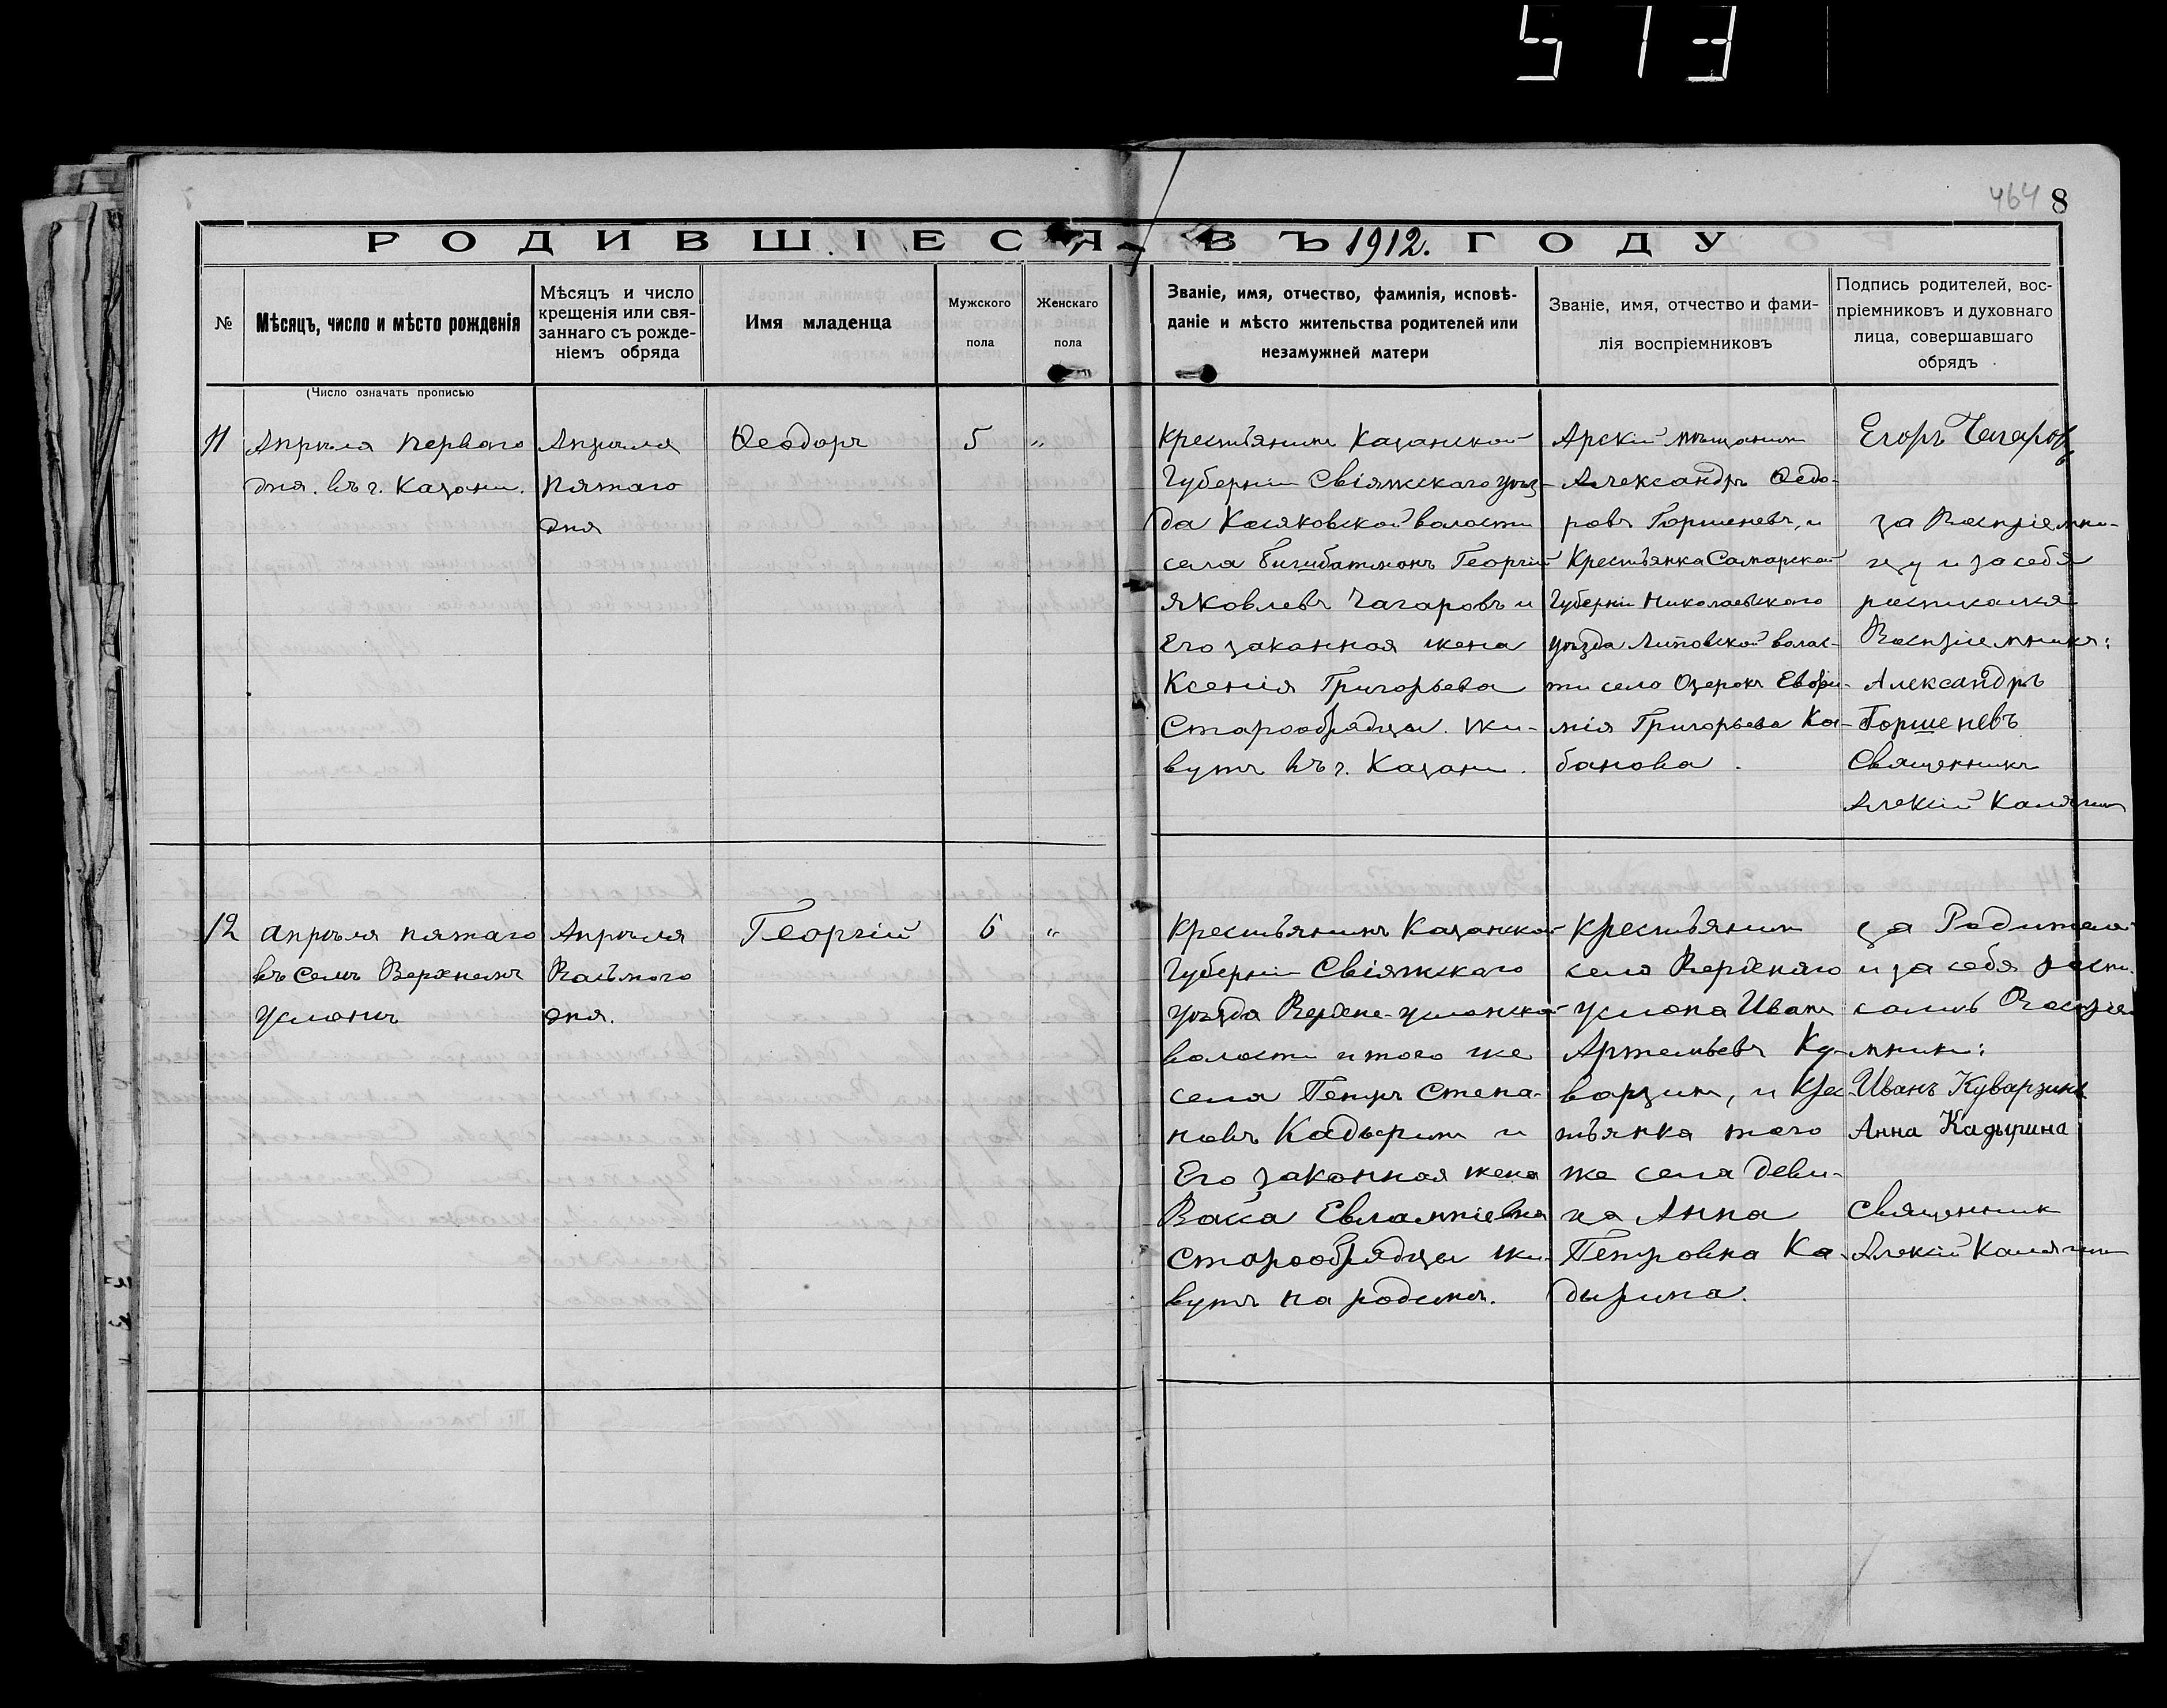 573
464 8
РОДИВШІЕСЯ ВЪ 1912. ГОДУ
№
Мѣсяцъ, число и мѣсто рожденія
Мѣсяцъ и число
крещенія или свя-
заннаго съ рожде-
ніемъ обряда
Имя младенца
Мужского
пола
Женскаго
пола
Званіе, имя, отчество, фамилія, исповѣ-
даніе и мѣсто жительства родителей или
незамужней матери
Званіе, имя, отчество и фами-
лія воспріемниковъ
Подпись родителей, вос-
пріемниковъ и духовнаго
лица, совершавшаго
обрядъ
(Число означать прописью
11
Апрѣля перваго
дня. въ г. Казани.
Апрѣля
пятаго
дня
Ѳеодоръ
5
"
Крестьянинъ Казанской
Губерніи Свіяжскаго уѣз-
да Косяковской волости
села Георгій
Яковлевъ Чагаровъ и
Его законная жена
Ксенія Григорьева
Старообрядцы. жи-
вутъ въ г. Казани.
Арскій мѣщанинъ
Александръ Ѳедо-
ровъ Горшеневъ, и
Крестьянка Самарской
Губерніи Николаевскаго
уѣзда Липовской волос-
ти село Озерокъ Евфи-
мія Григорьева Ка-
банова.
Егоръ Чагаровъ
за Воспріемни-
цу и за себя
росписался
Воспріемникъ:
Александръ
Горшеневъ
Священникъ
Алексій Калягинъ
12
апрѣля пятаго
въ селѣ Верхнемъ
Услонѣ
Апрѣля
Восьмого
дня.
Георгій
6
"
Крестьянинъ Казанской
Губерніи Свіяжскаго
уѣзда Верхне-услонской
волости и того же
села Петръ Степа-
новъ Кадыринъ и
Его законная жена
Васса Евлампіевна
Старообрядцы жи-
вутъ на родинѣ.
Крестьянинъ
села Верхняго
услона Иванъ
Артемьевъ Ку-
варзинъ, и Крес-
тьянка того
же села деви-
ца Анна
Петровна Ка-
дырина.
за Родителя
и за себя распи-
сались Воспріе-
мники:
Иванъ Куварзинъ
Анна Кадырина
Священник
Алексій Калягинъ